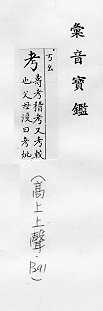 彙音寶鑑
ㄎㄜ
考
壽考稽考又考較
也父母沒曰考妣
(高上上聲·391)